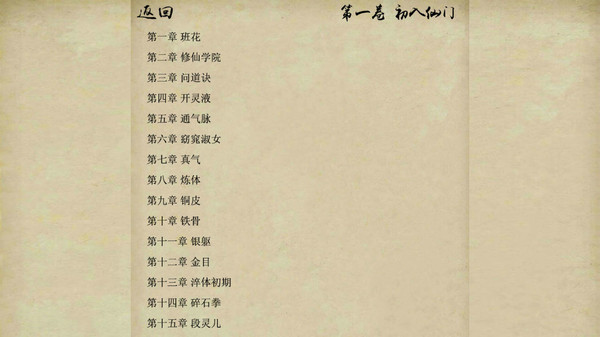 返回 第一卷 初入仙门
第一章 班花
第二章 修仙学院
第三章 问道诀
第四章 开灵液
第五章 通气脉
第六章 窈窕淑女
第七章 真气
第八章 炼体
第九章 铜皮
第十章 铁骨
第十一章 银躯
第十二章 金目
第十三章 淬体初期
第十四章 碎石拳
第十五章 段灵儿